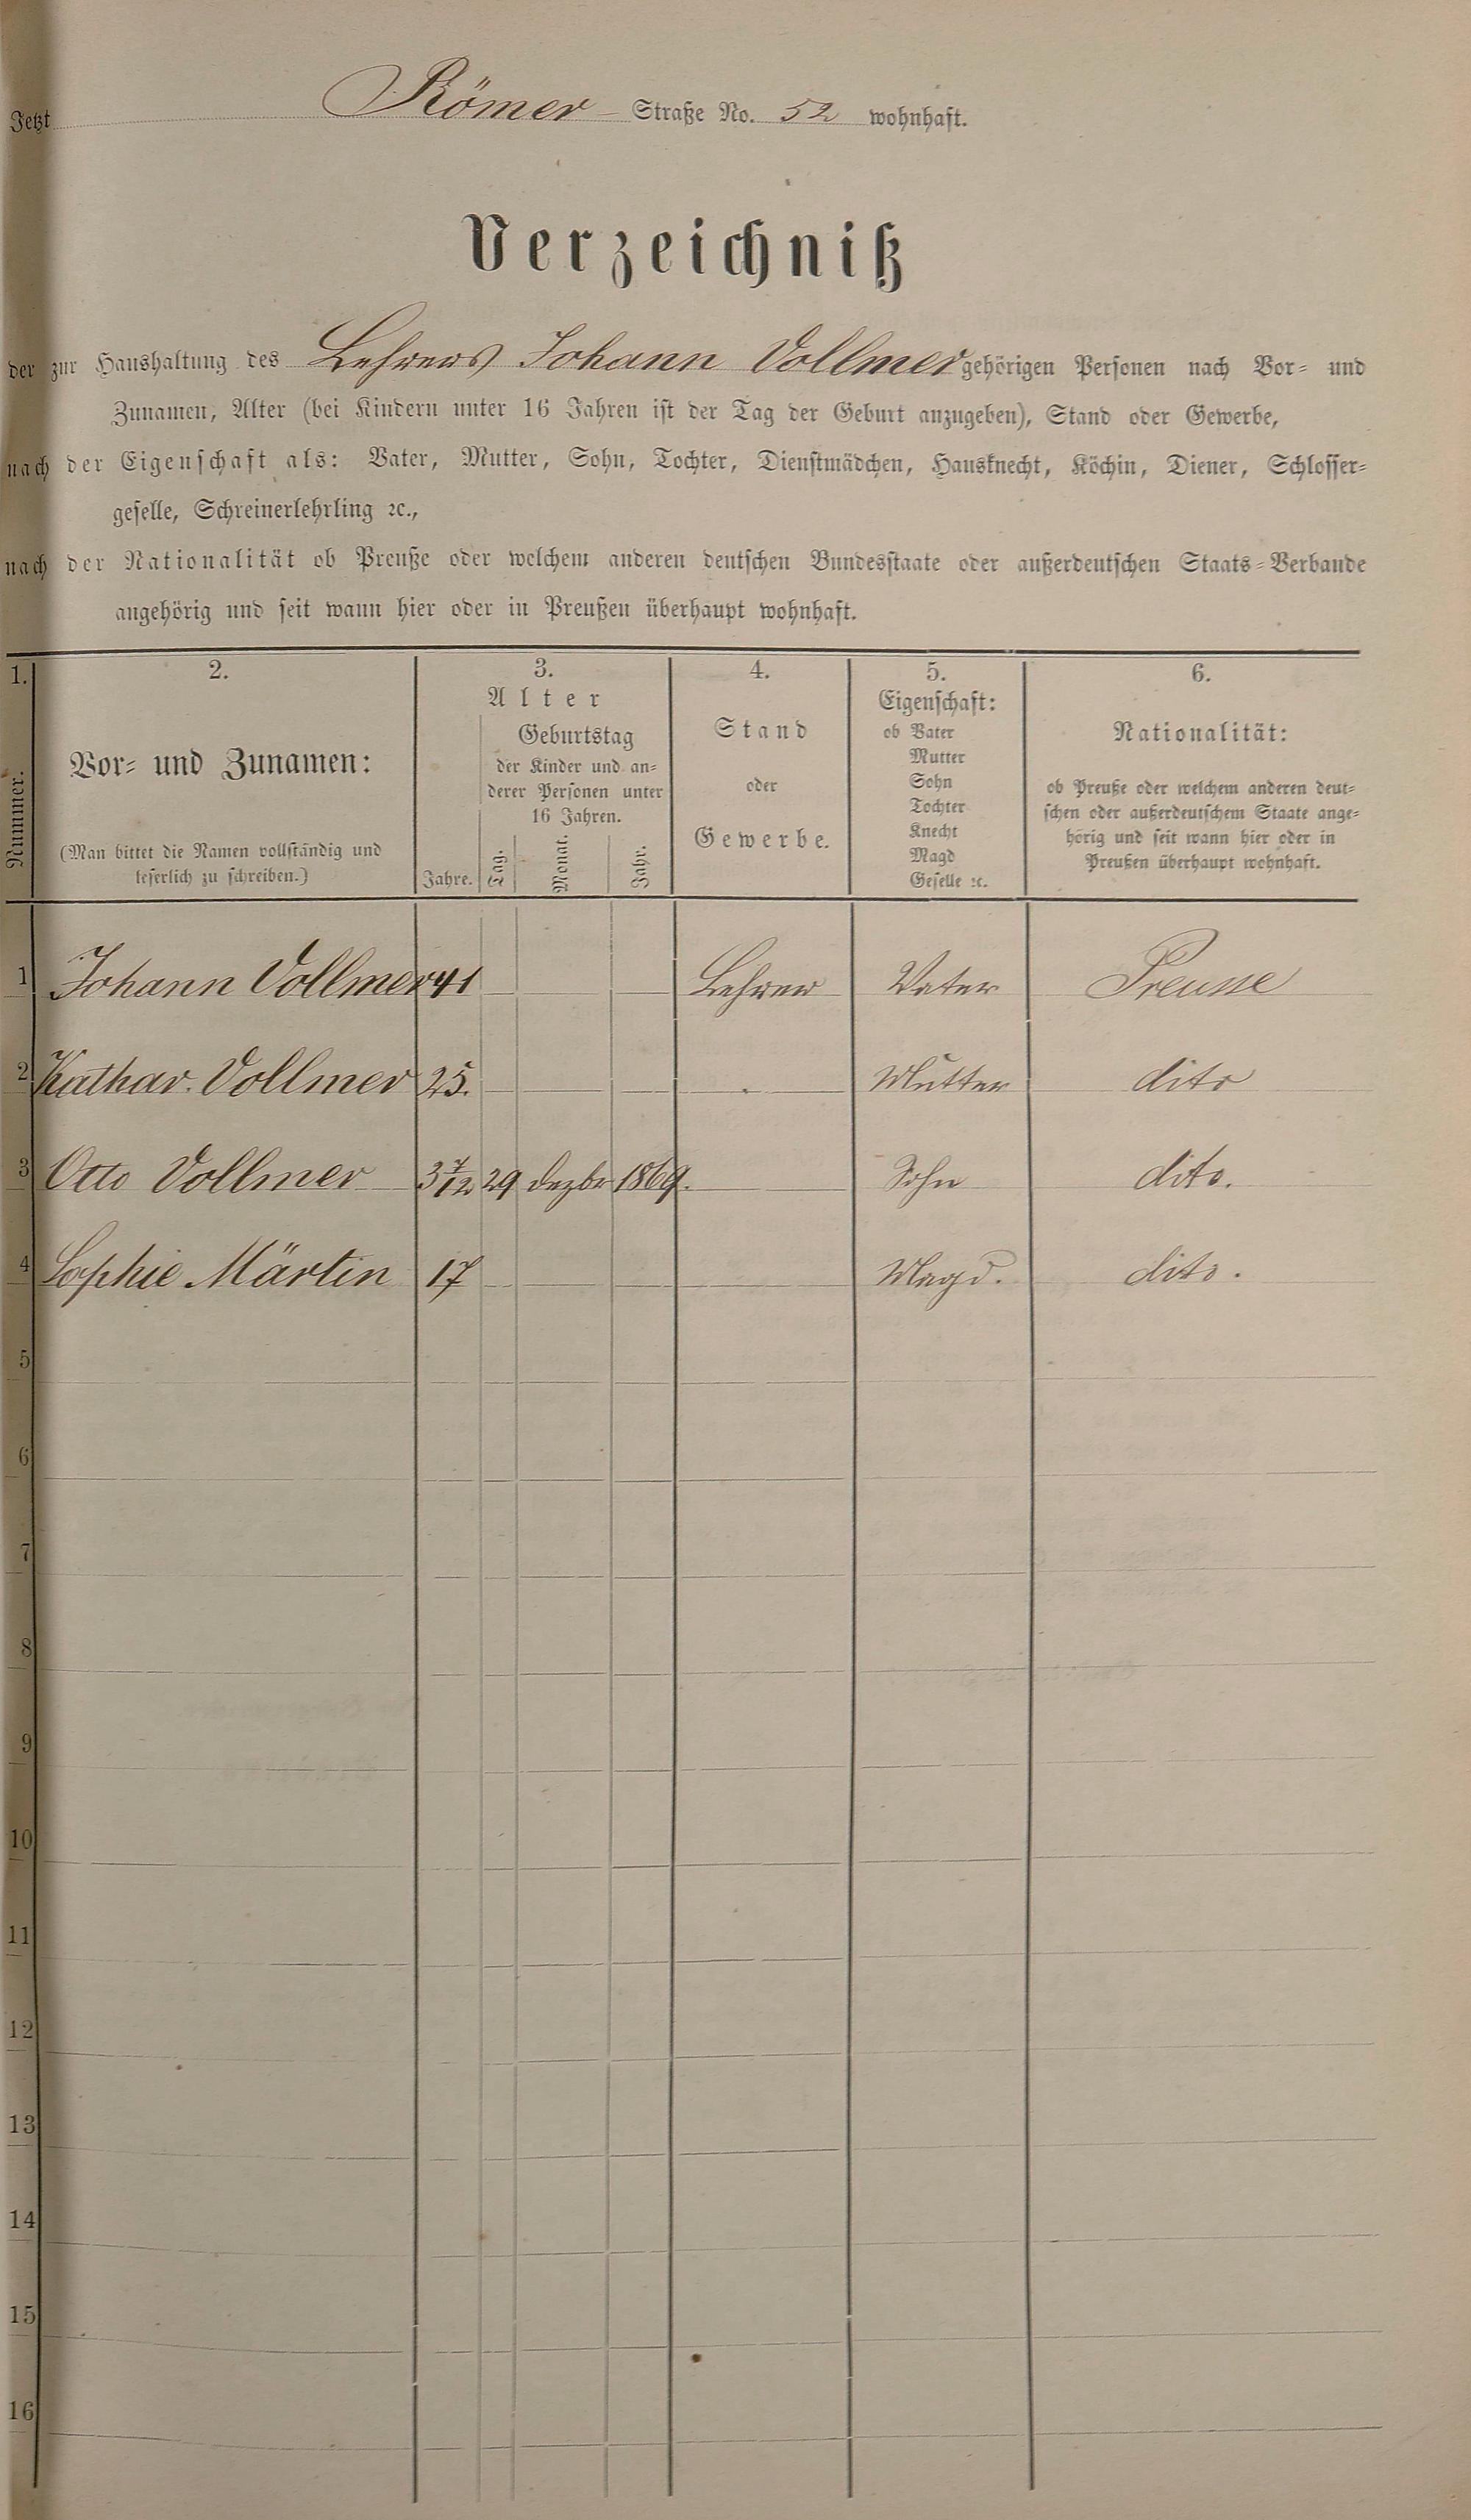 Jetzt Römer - Straße No. 52 wohnhaft.
Verzeichniß
der zur Haushaltung des Lehrers Johann Vollmer gehörigen Personen nach Vor- und
Zunamen, Alter (bei Kindern unter 16 Jahren ist der Tag der Geburt anzugeben), Stand oder Gewerbe,
nach der Eigenschaft als: Vater, Mutter, Sohn, Tochter, Dienstmädchen, Hausknecht, Köchin, Diener, Schlosser-
geselle, Schreinerlehrling ꝛc.,
nach der Nationalität ob Preuße oder welchem anderen deutschen Bundesstaate oder außerdeutschen Staats-Verbande
angehörig und seit wann hier oder in Preußen überhaupt wohnhaft.
1.
Nummer.
2.
Vor- und Zunamen:
(Man bittet die Namen vollständig und
leserlich zu schreiben.)
3.
Alter
Jahre.
Geburtstag
der Kinder und an-
derer Personen unter
16 Jahren.
Tag. Monat. Jahr.
4.
Stand
oder
Gewerbe.
5.
Eigenschaft:
ob Vater
Mutter
Sohn
Tochter
Knecht
Magd
Geselle ꝛc.
6.
Nationalität:
ob Preuße oder welchem anderen deut-
schen oder außerdeutschem Staate ange-
hörig und seit wann hier oder in
Preußen überhaupt wohnhaft.
1 Johann Vollmer 41 Lehrer Vater Preusse
2 Kathar. Vollmer 25. Mutter dito
3 Otto Vollmer 3 7/12 29 Dezbr 1869. Sohn dito.
4 Sophie Märtin 17 Magd. dito.
5
6
7
8
9
10
11
12
13
14
15
16